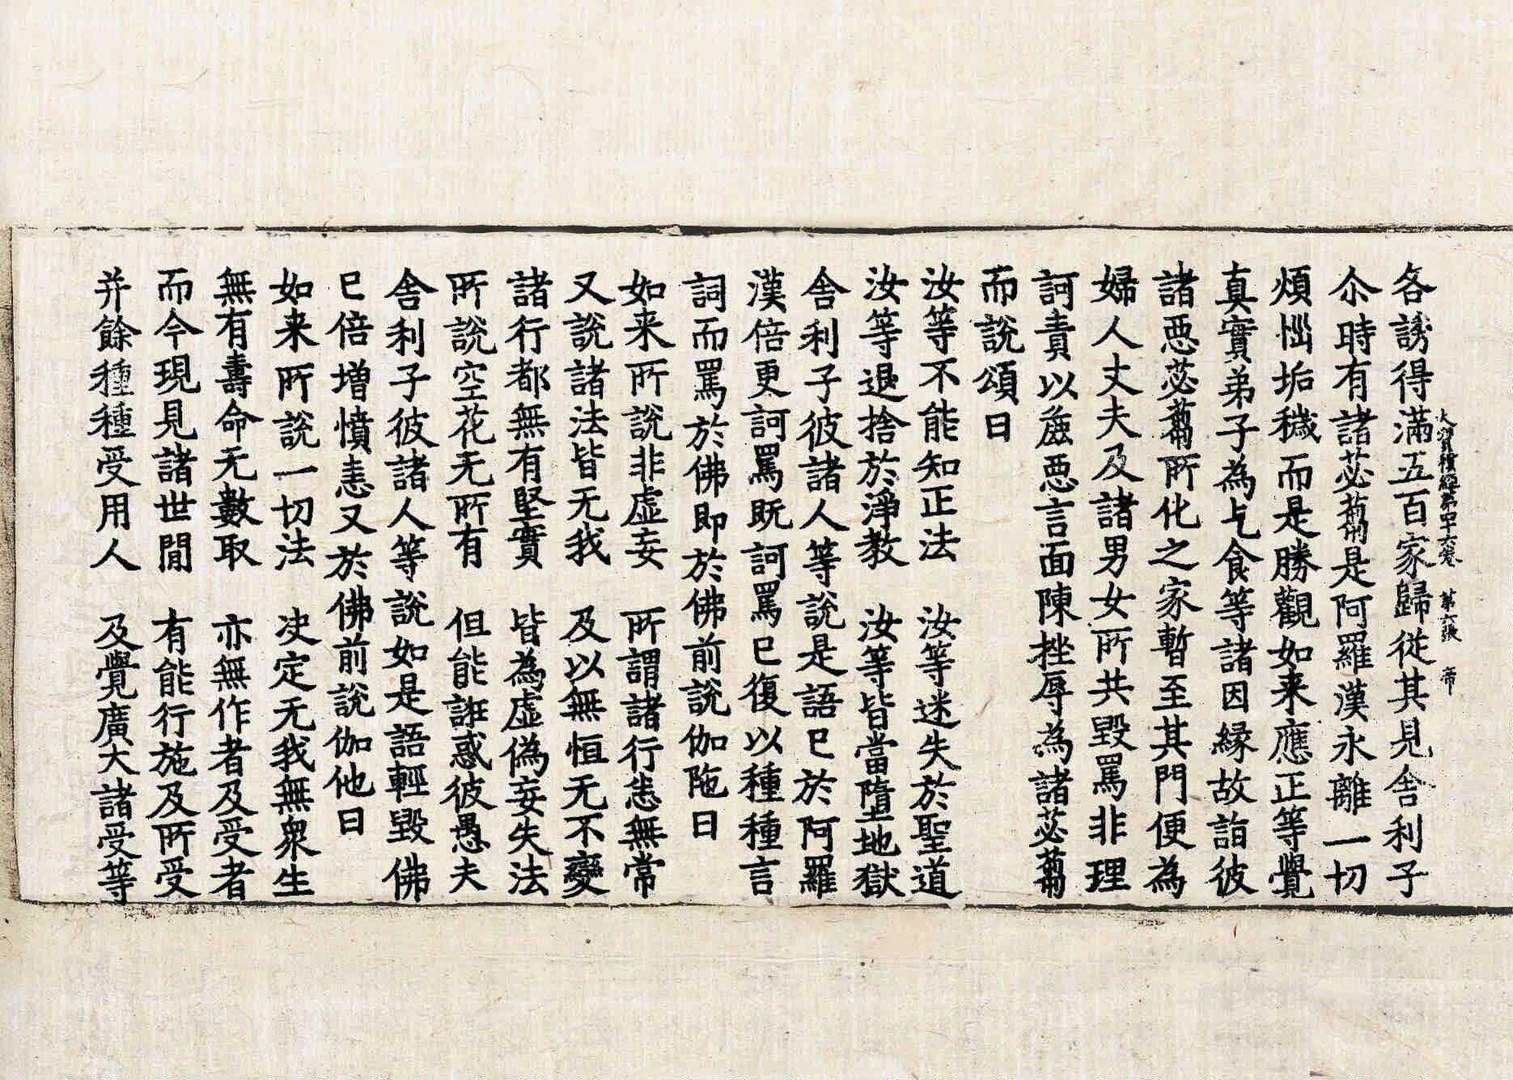 大寶積經第四十六卷　第六張　帝
各誘得滿五百家歸從其見舍利子
尒時有諸苾蒭是阿羅漢永離一切
煩惱垢穢而是勝觀如来應正等覺
真實弟子為乞食等諸因縁故詣彼
諸惡苾蒭所化之家暫至其門便為
婦人丈夫及諸男女所共毀罵非理
訶責以麁惡言面陳挫辱為諸苾蒭
而說頌曰
汝等不能知正法　汝等迷失於聖道
汝等退捨於淨教　汝等皆當墮地獄
舍利子彼諸人等說是語已於阿羅
漢倍更訶罵既訶罵已復以種種言
詞而罵於佛即於佛前說伽陁曰
如来所說非虛妄　所謂諸行恙無常
又說諸法皆无我　及以無恒无不變
諸行都無有堅實　皆為虛偽妄失法
所說空花无所有　但能誑惑彼愚夫
舍利子彼諸人等說如是語輕毀佛
已倍增憤恚又於佛前說伽他曰
如来所說一切法　决定无我無衆生
無有壽命无數取　亦無作者及受者
而今現見諸世閒　有能行施及所受
并餘種種受用人　及覺廣大諸受等